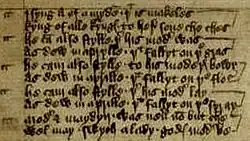 I syng A of a myden þt is makeles
kyng of alle kynges to here sone che ches
he cam also stylle þer his moder was
as dew in aprylle þt fallyt on þe gras
he cam also stylle to his moderes bowr
as dew in aprille þt fallyt on þe flour
he cam also stylle þer his moder lay
as dew in aprille þt fallyt on þe spray
moder & maydyn was neuer non but che
wel may swych a lady godes moder be